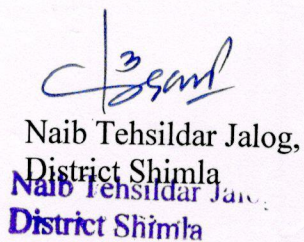 Naib Tehsildar Jalog,
District Shimla
Naib Tehsildar
District Shimla